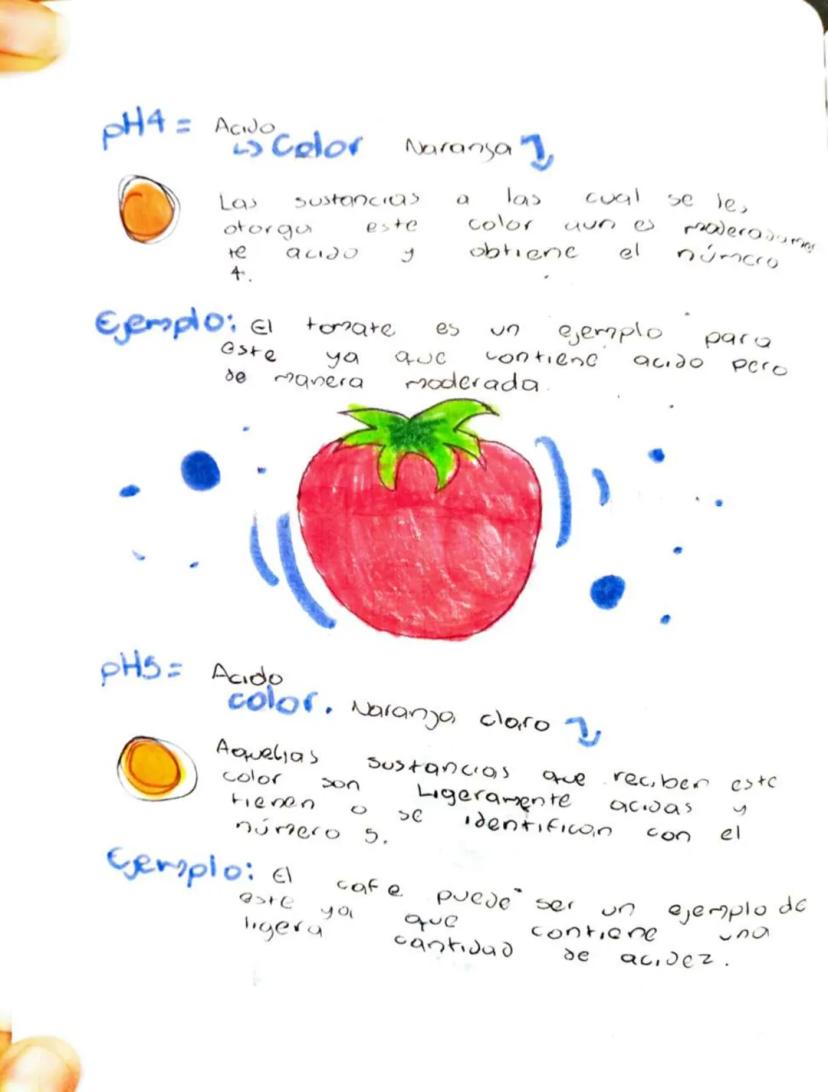 pH4 = Acido
↳ Color Naranja ↴
Las sustancias a las cual se les
otorga este color aun es moderadamen
te acido y obtiene el número
4.
Ejemplo: El tomate es un ejemplo para
este ya que contiene acido pero
de manera moderada.
pH5 = Acido
color. Naranja claro ↴
Aquellas sustancias que reciben este
color son Ligeramente acidas y
tienen o se identifican con el
número 5.
Ejemplo: El cafe puede ser un ejemplo de
este ya que contiene una
ligera cantidad de acidez.